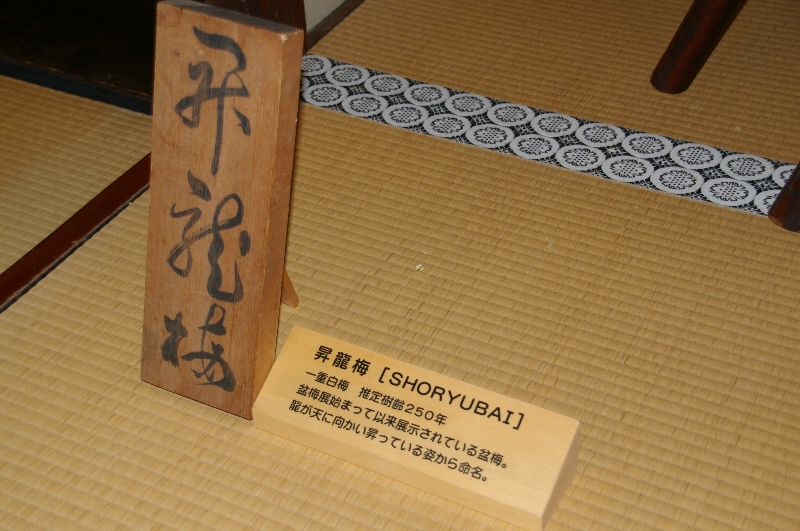 昇龍梅
昇龍梅 [SHORYUBAI]
一重白梅 推定樹齢250年
盆梅展始まって以来展示されている盆梅。
龍が天に向かい昇っている姿から命名。